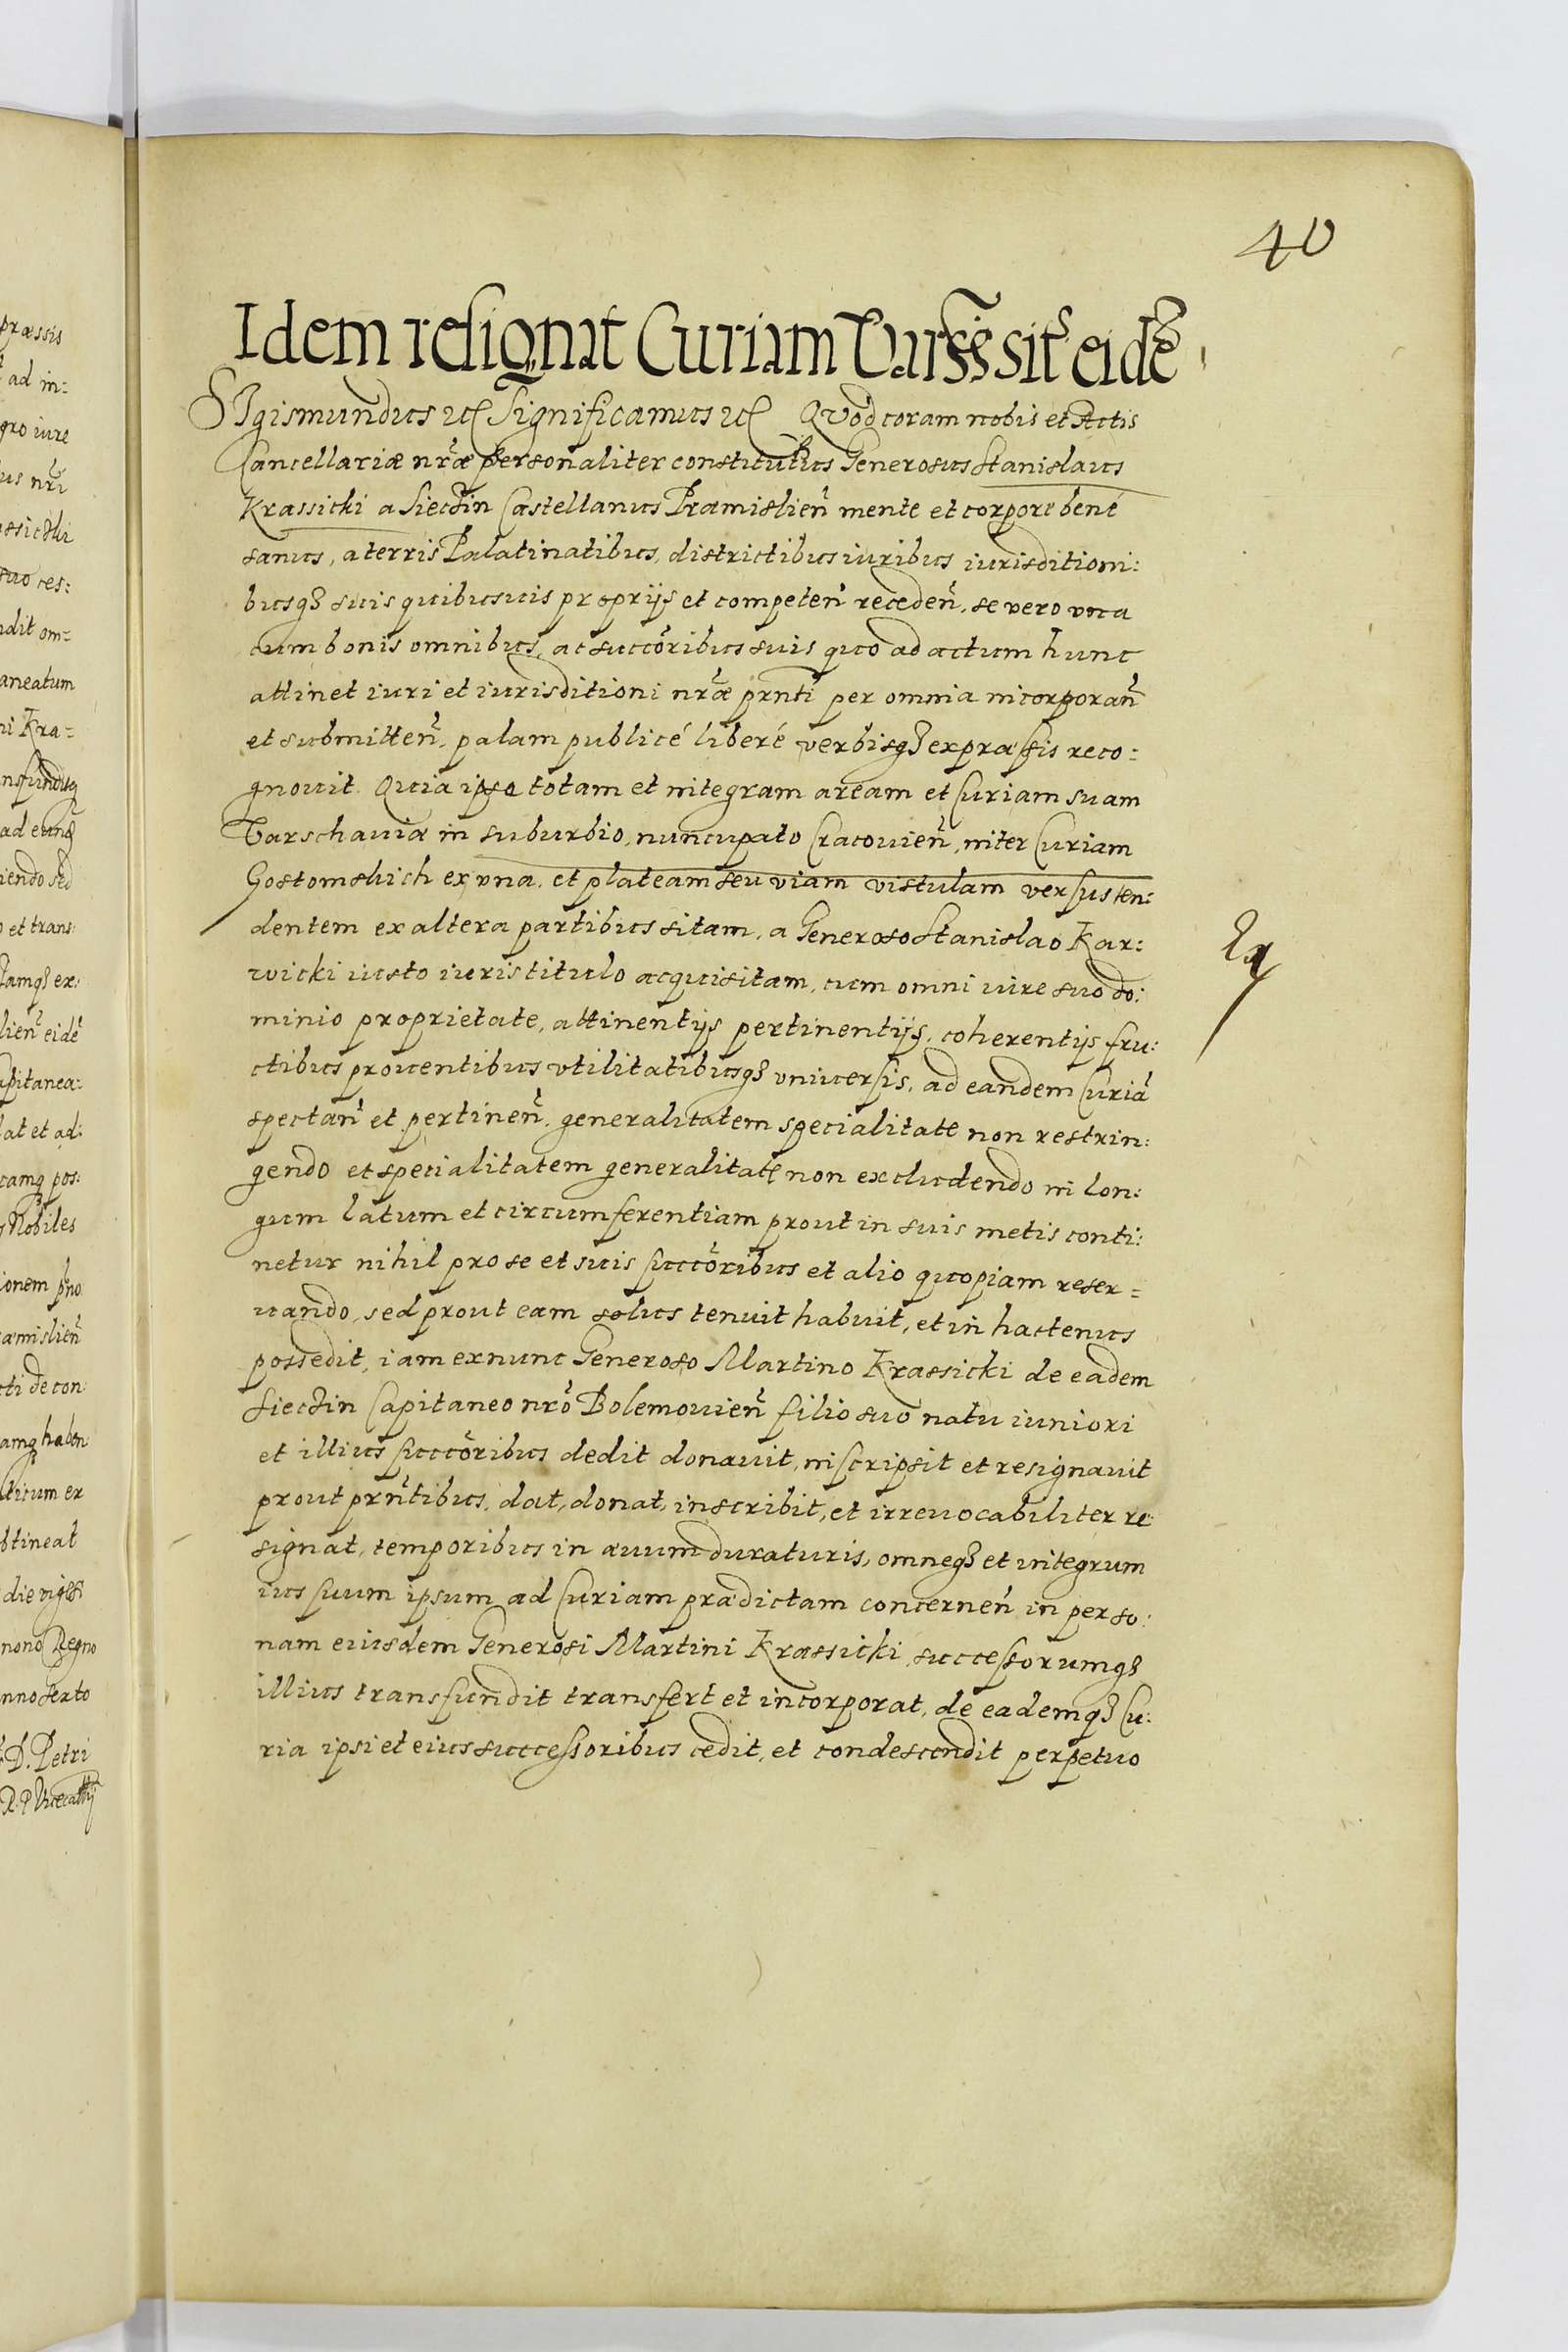 40
Idem resignat Curiam Varss sit eidē
SIgismundus etc Significamus etc Quod coram nobis et Actis
Cancellariæ nræ personaliter constitutus Generosus Stanislaus
Krassicki a Siecżin Castellanus Præmislien mente et corpore bene
sanus, a terris Palatinatibus, districtibus iuribus iurisditioni:
busq3 suis quibusuis proprijs et competen receden, se vero vna
cum bonis omnibus, ac succoribus suis quo ad actum hunc
attinet iuri et iurisditioni nræ prnti per omnia incorporan
et submitten, palam publicé liberé verbisq3 expræssis reco:
gnouit. Quia ipse totam et integram aream et Curiam suam
Varschauiæ in suburbio, nuncupato Cracouien, inter Curiam
Gostomskich ex vna, et plateam seu viam vistulam versus ten:
dentem ex altera partibus sitam, a Generoso Stanislao Kar:
wicki iusto iuris titulo acquisitam, cum omni iure suo do:
minio proprietate, attinentijs pertinentijs, coherentijs fru:
ctibus prouentibus vtilitatibusq3 vniuersis, ad eandem Curiā
spectan et pertinen, generalitatem specialitate non restrin:
gendo et specialitatem generalitate non excludendo in lon:
gum latum et circumferentiam prout in suis metis conti:
netur nihil pro se et suis succoribus et alio quopiam reser=
uando, sed prout eam solus tenuit habuit, et in hactenus
possedit, iam ex nunc Generoso Martino Krassicki de eadem
Siecżin Capitaneo nro Bolemouien filio suo natu iuniori
et illius succoribus dedit donauit, inscripsit et resignauit
prout prntibus, dat, donat, inscribit, et irreuocabiliter re
signat, temporibus in æuum duraturis, omneq3 et integrum
ius suum ipsum ad Curiam prædictam concernen in perso:
nam eiusdem Generosi Martini Krassicki, successorumq3
illius transfundit transfert et incorporat, de eademq3 Cu:
ria ipsi et eius successoribus cedit, et condescendit perpetuo